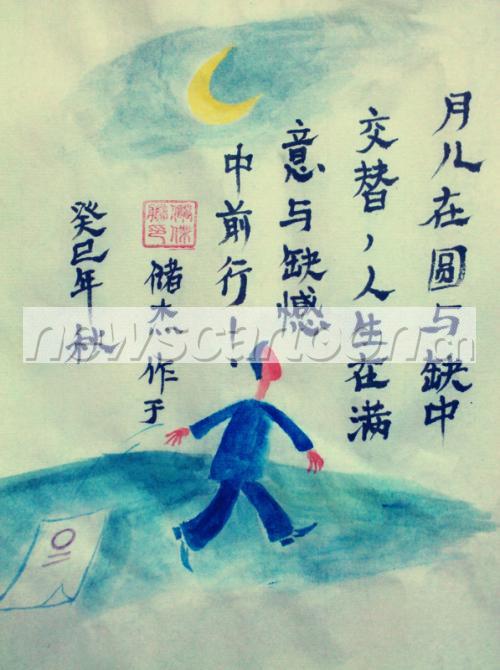 月儿在圆与缺中
交替，人生在满
意与缺憾
中前行！
储杰作于
癸巳年秋
newscartoon.cn